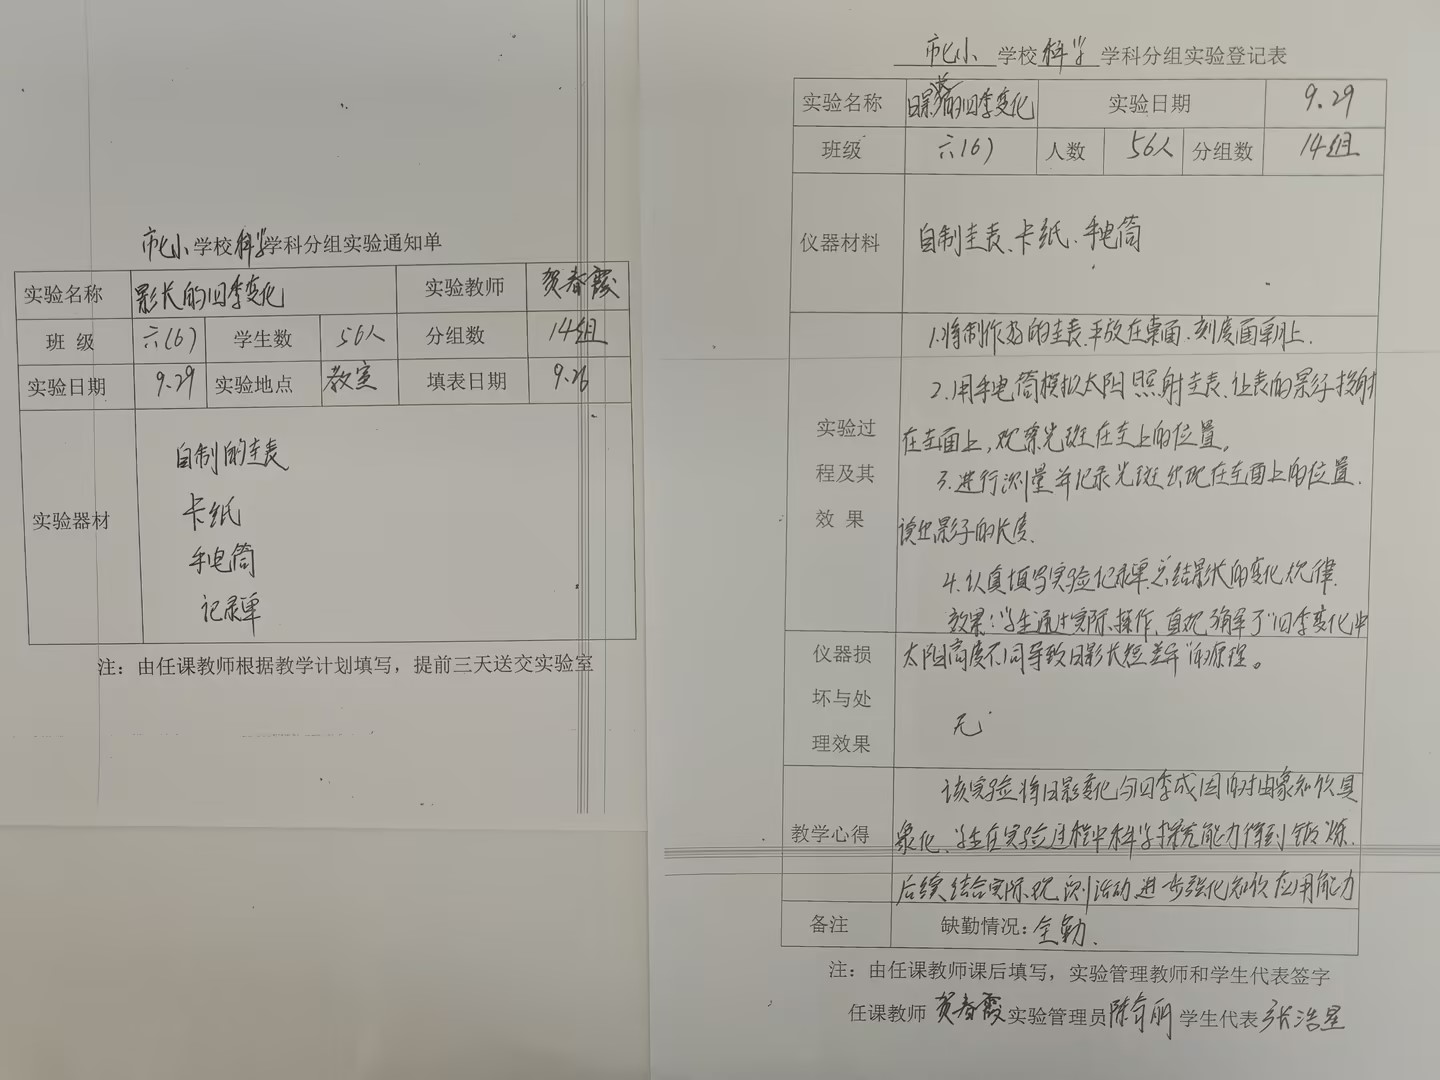 市七小学校科学学科分组实验通知单
实验名称 影长的四季变化 实验教师 贺春霞
班 级 六(6) 学生数 56人 分组数 14组
实验日期 9.29 实验地点 教室 填表日期 9.26
实验器材
自制的圭表
卡纸
手电筒
记录单
注：由任课教师根据教学计划填写，提前三天送交实验室
市七小 学校科学 学科分组实验登记表
实验名称 日影的四季变化 实验日期 9.29
班级 六(6) 人数 56人 分组数 14组
仪器材料 自制圭表、卡纸、手电筒
实验过程及其效 果
1.将制作好的圭表平放在桌面、刻度面朝上.
2.用手电筒模拟太阳照射圭表、让表的影子投射
在圭面上，观察光斑在圭上的位置。
3.进行测量并记录光斑出现在圭面上的位置.
读出影子的长度.
4.认真填写实验记录单.总结影长的变化规律.
效果：学生通过实际操作、直观理解了“四季变化中
太阳高度不同导致日影长短差异”的原理。
仪器损坏与处理效果
无
教学心得
该实验将日影变化与四季成因的抽象知识具
象化、学生在实验过程中科学探究能力得到锻炼.
后续结合实际观测活动进一步强化知识应用能力
备注 缺勤情况：全勤.
注：由任课教师课后填写，实验管理教师和学生代表签字
任课教师 贺春霞 实验管理员 学生代表 张浩星